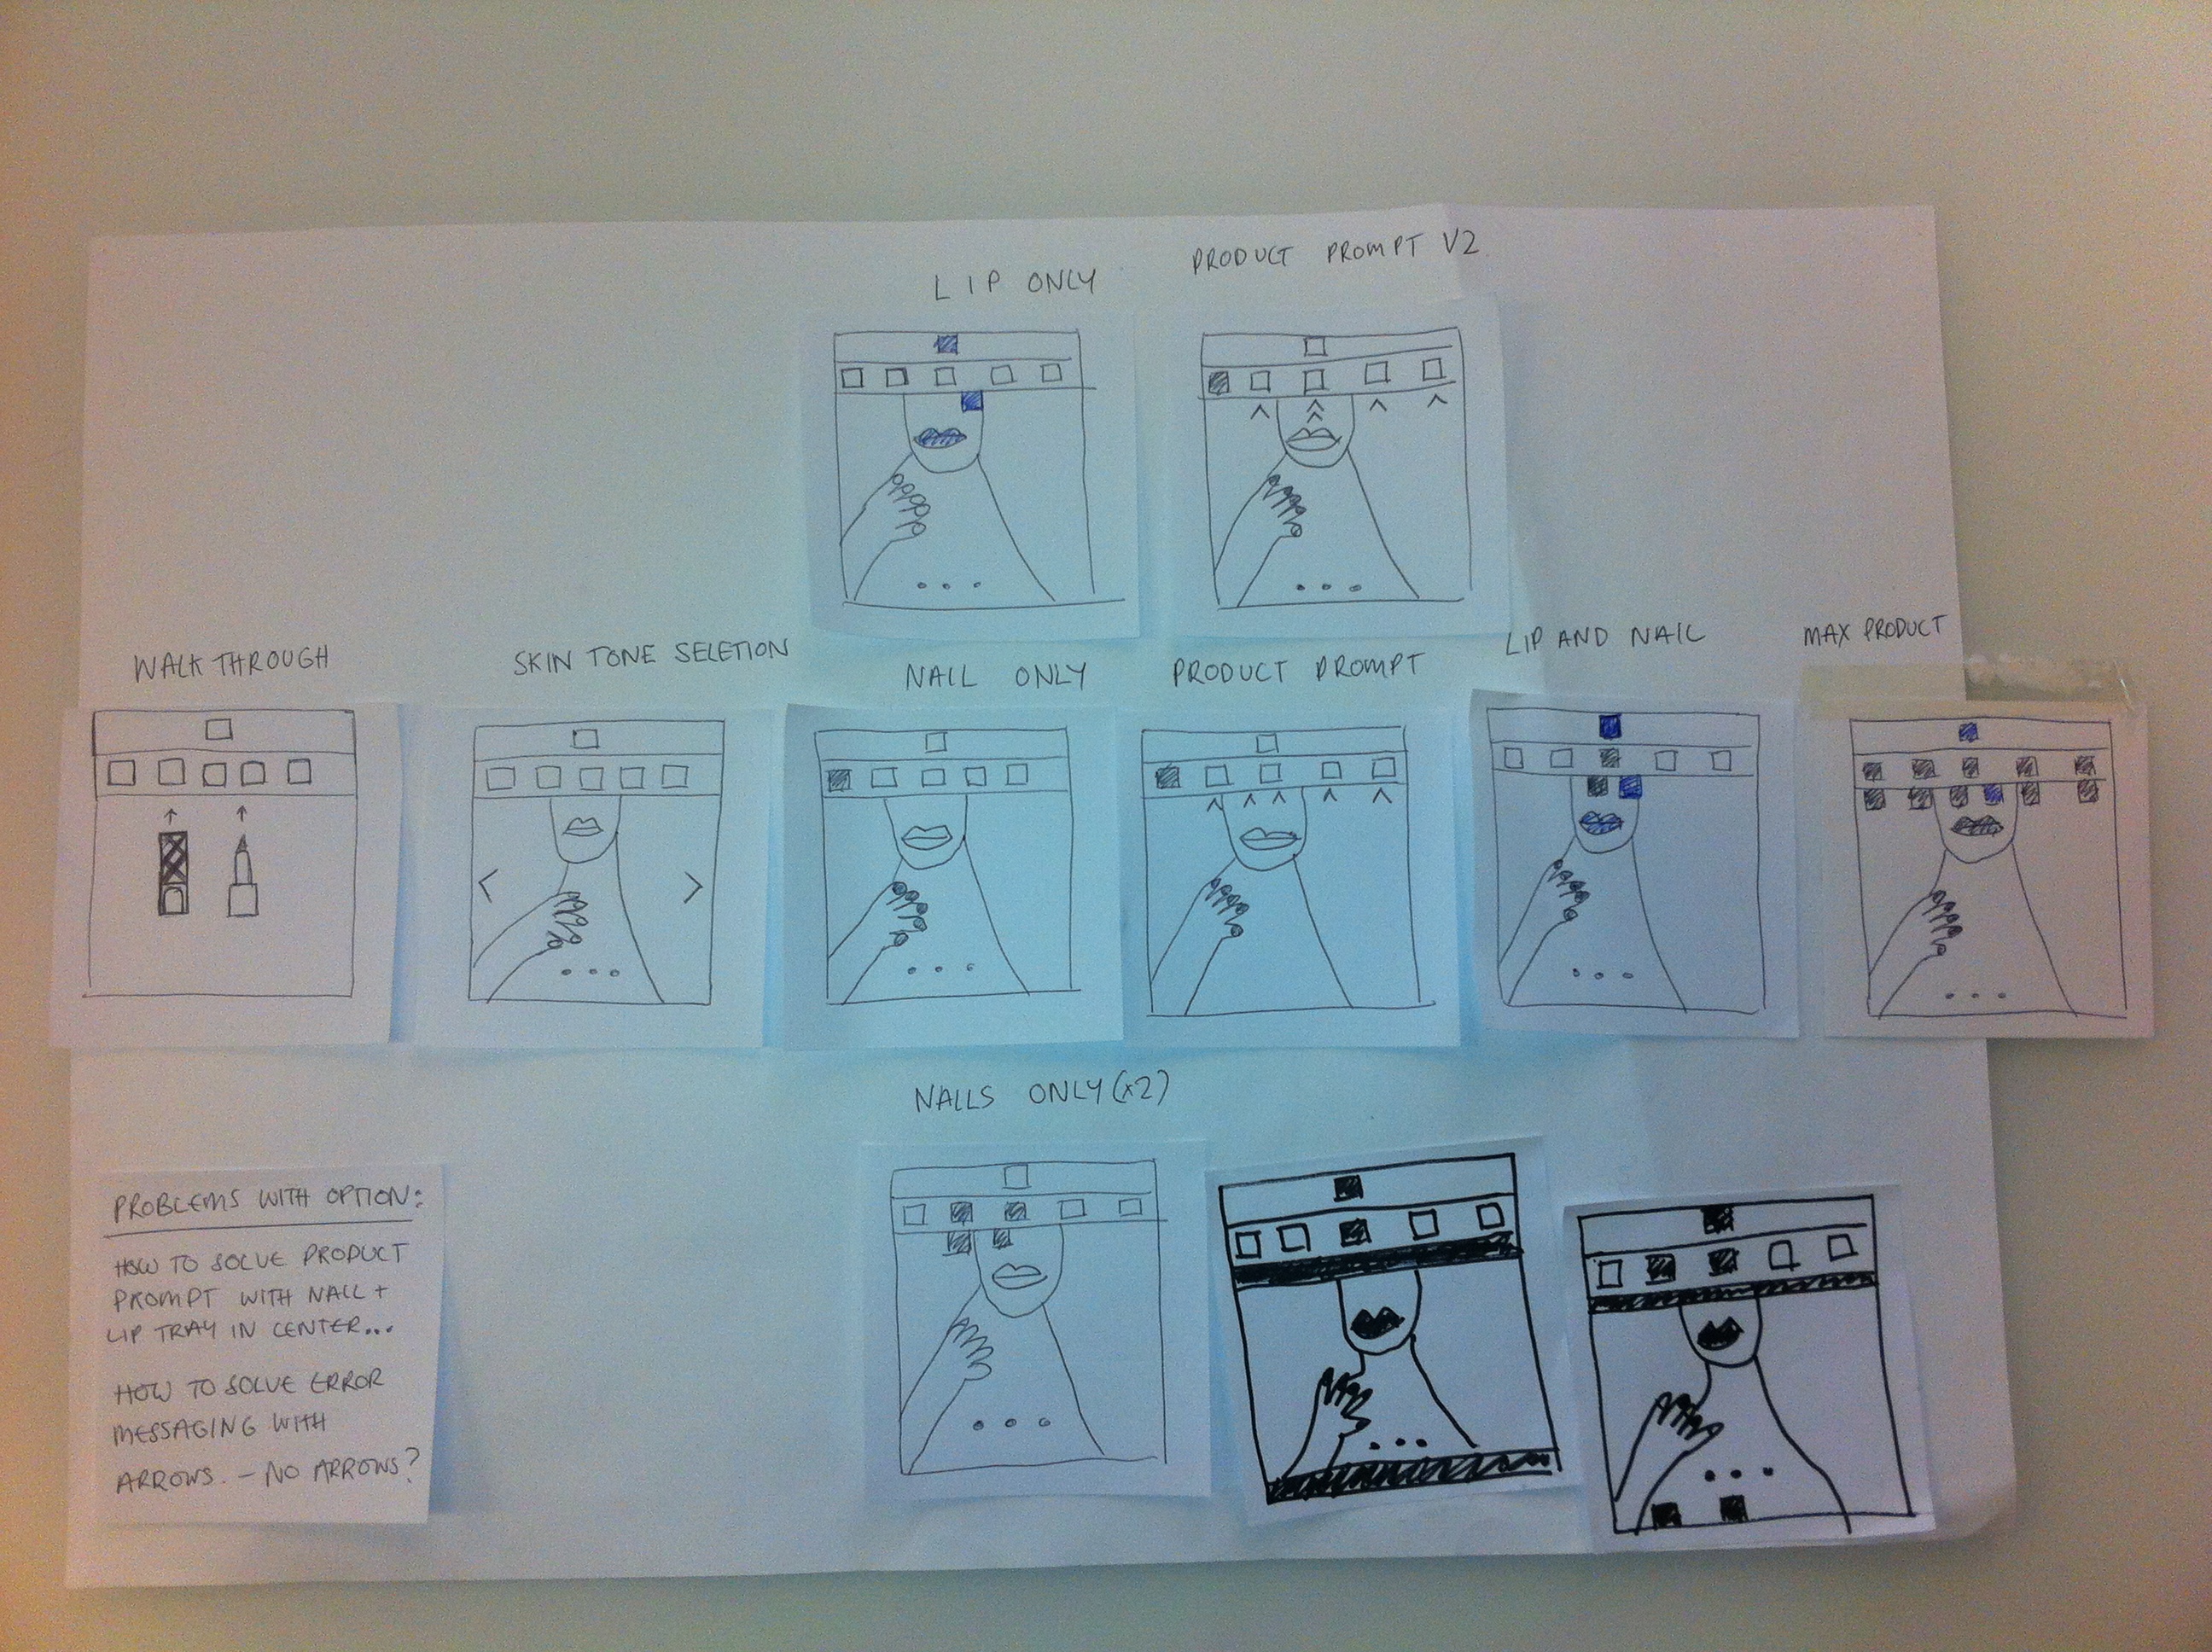 LIP ONLY
PRODUCT PROMPT V2
WALKTHROUGH
SKIN TONE SELETION
NAIL ONLY
PRODUCT PROMPT
LIP AND NAIL
MAX PRODUCT
NAILS ONLY (X2)
PROBLEMS WITH OPTION:
HOW TO SOLVE PRODUCT
PROMPT WITH NAIL +
LIP TRAY IN CENTER...
HOW TO SOLVE ERROR
MESSAGING WITH
ARROWS. - NO ARROWS?